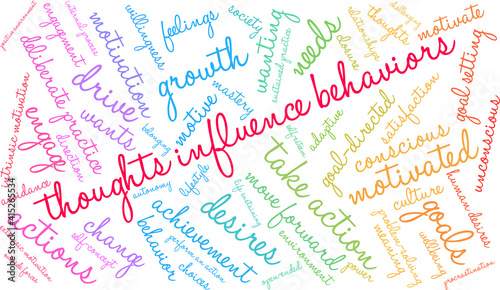 positive environment
engagement
willingness
feelings
society
wanting
needs
desire
relationships
thoughts
motivate
deliberate practice
motivation
drive
growth
sustained practice
goal setting
intrinsic motivation
engage
direction
wants
motive
mastery
adaptive
goal-directed
satisfaction
conscious
unconscious
thoughts influence behaviors
belonging
autonomy
lifestyle
take action
motivated
avoidance
actions
self-concept
change
achievement
behavior
choices
perform an action
desires
move forward
environment
open-ended
power
culture
goals
human desires
problem solving
meaning
wellbeing
procrastination
extrinsic motivation
driving force
Adobe Stock | #415265534